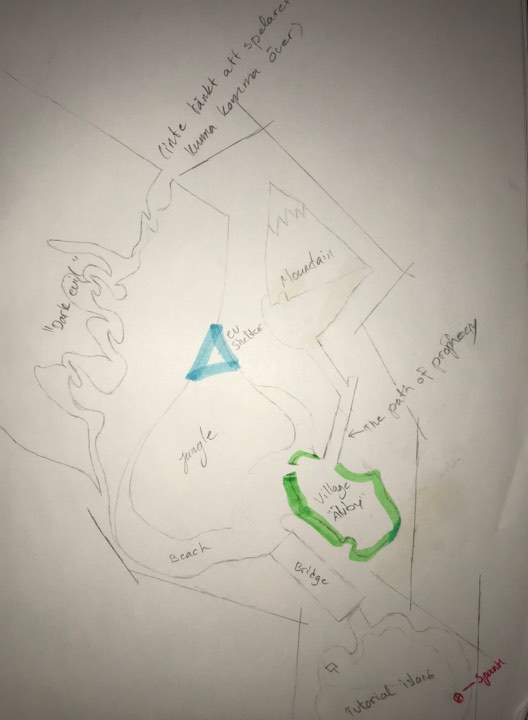 (inte tänkt att spelaren
kunna komma över)
"Dark evil"
Mountain
ev
shelter
The path of prophecy
jungle
Village
"Älvby"
Beach
Bridge
Tutorial island
Spawn